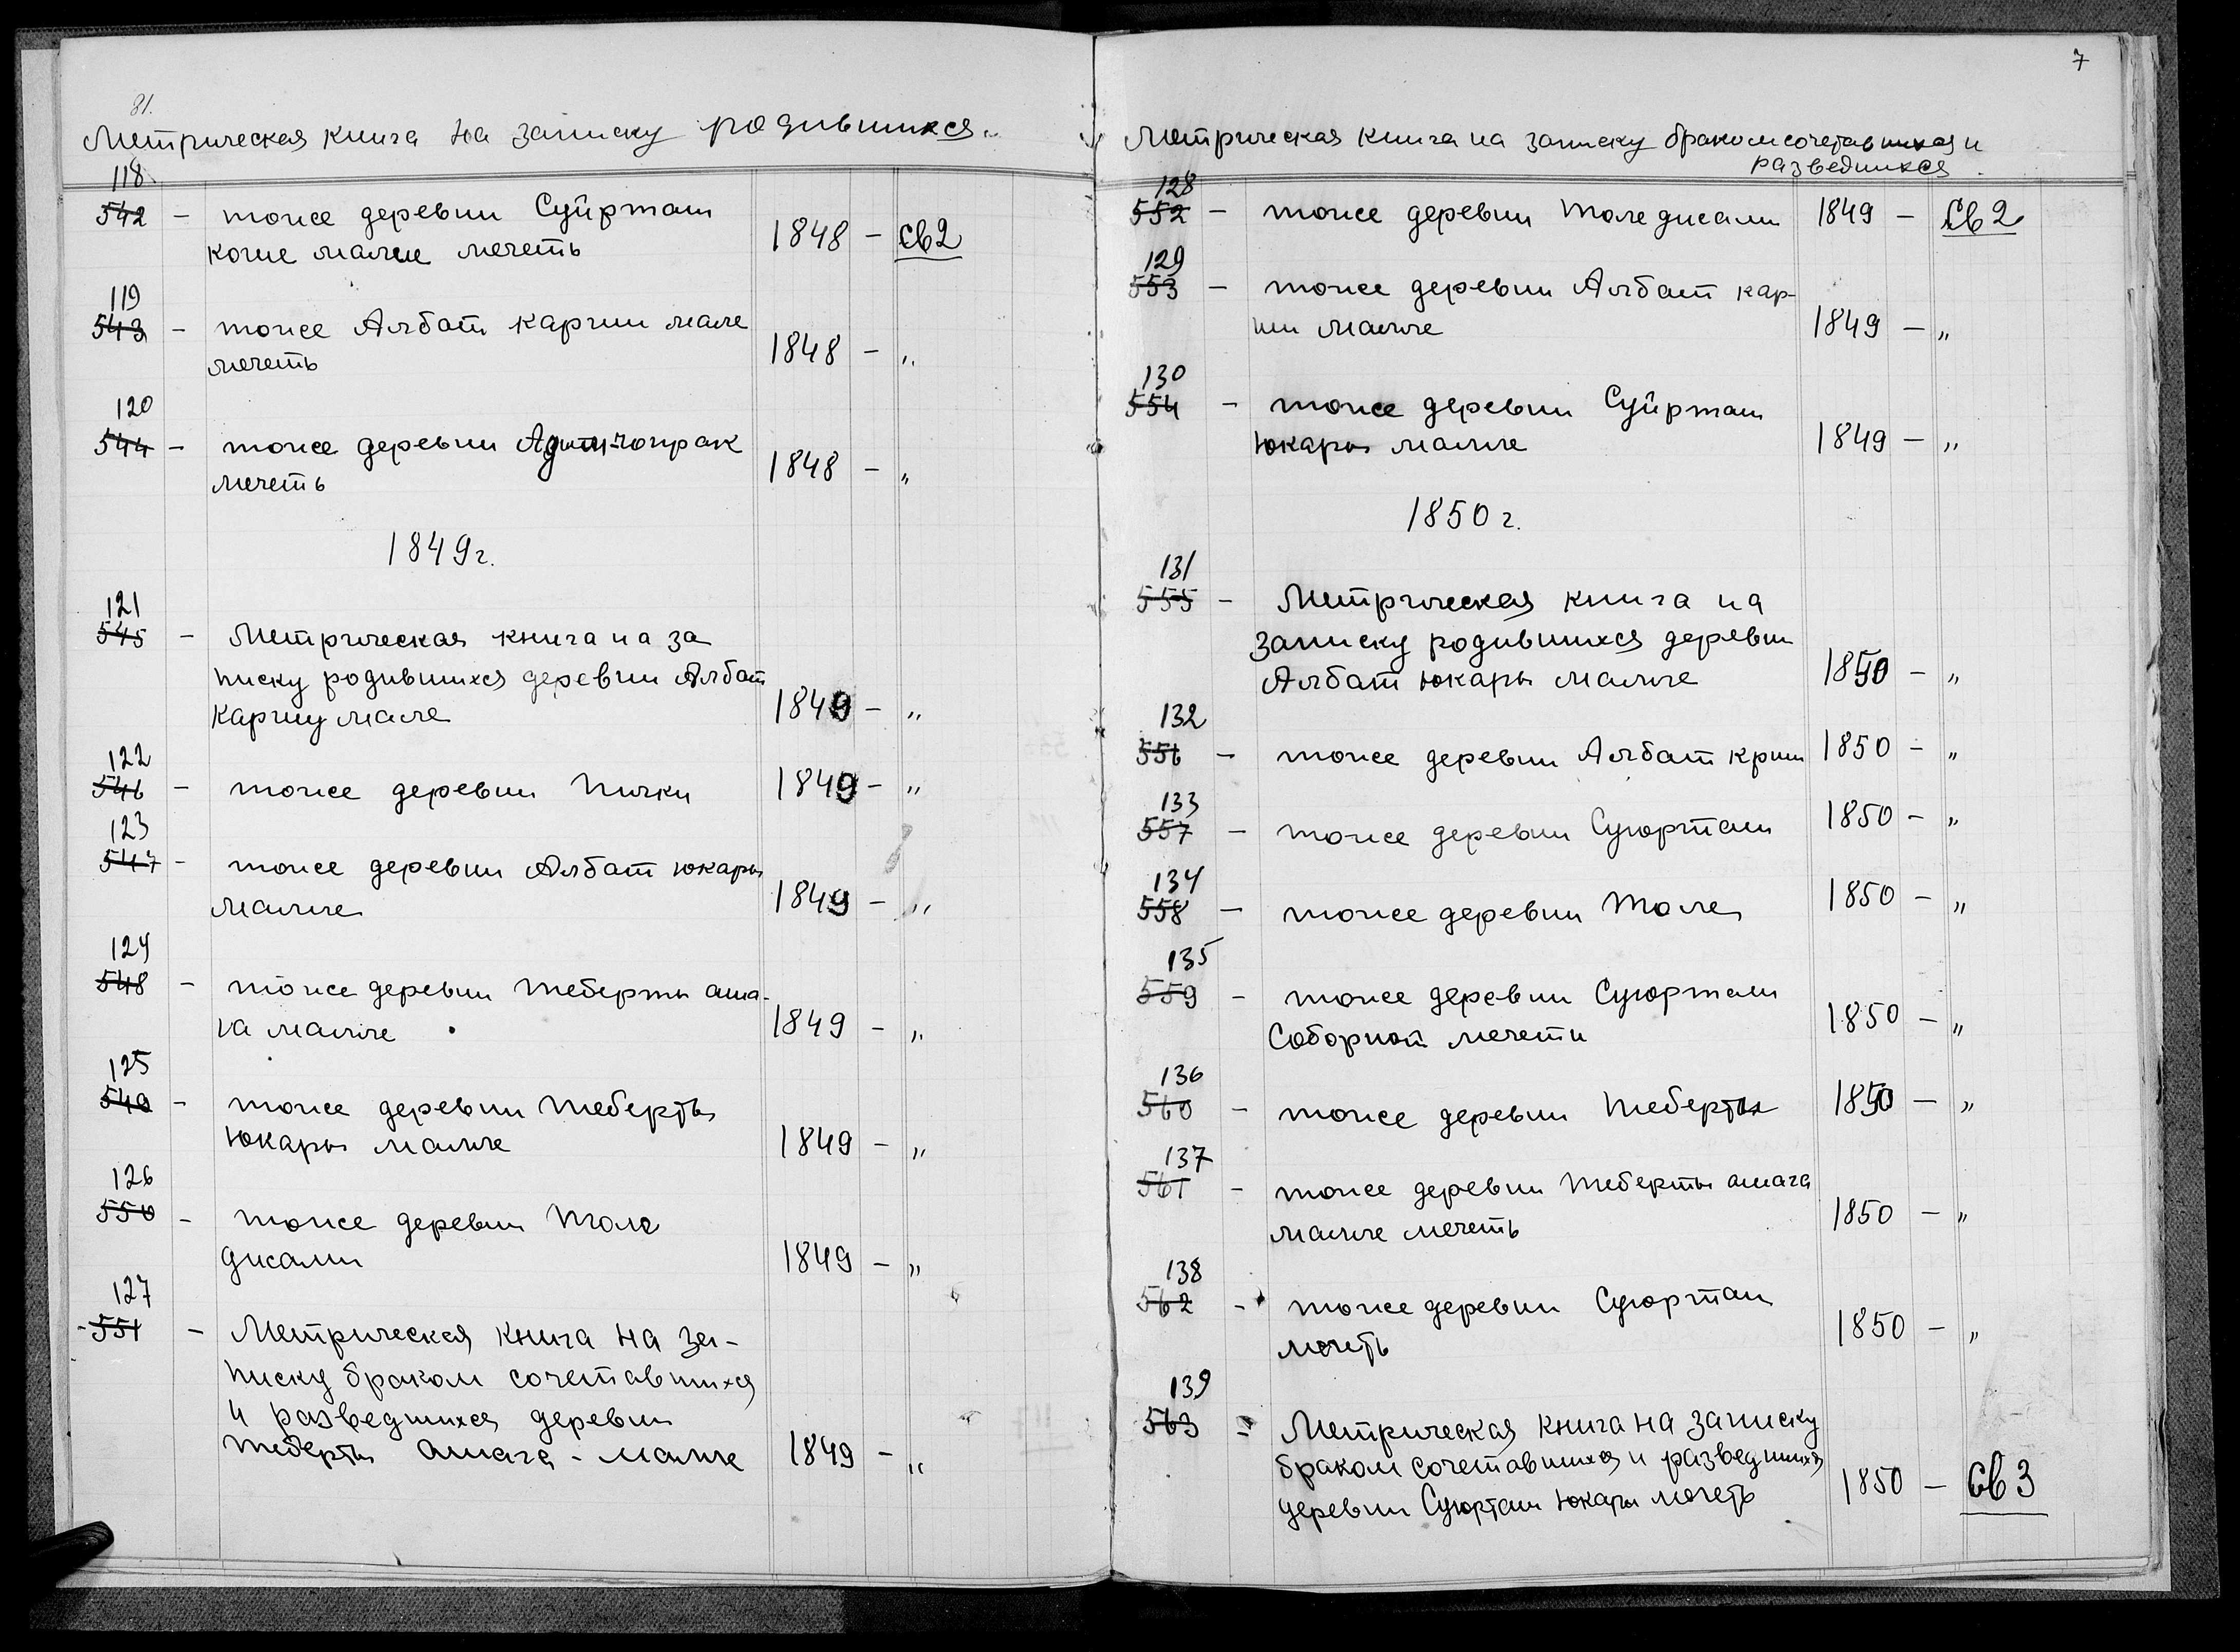 81.
Метрическая книга на записку родившихся.
118
542 - тоже деревни Суйрташ
коше малле мечеть 1848 - Св 2
119
543 - тоже Албат каршы мале
мечеть 1848 - "
120
544 - тоже деревни
мечеть 1848 - "
1849 г.
121
545 - Метрическая книга на за
писку родившихся деревни Албат
каршу мале 1849 - "
122
546 - тоже деревни Пички 1849 - "
123
547 - тоже деревни Албат юкары
малле 1849 - "
124
548 - тоже деревни Теберты аша-
га малле 1849 - "
125
549 - тоже деревни Теберты
юкары малле 1849 - "
126
550 - тоже деревни Толе
джами 1849 - "
127
551 - Метрическая книга на за-
писку браком сочетавшихся
и разведшихся деревни
Теберты Ашага - малле 1849 - "
7
Метрическая книга на записку браком сочетавшихся и
разведшихся
128
552 - тоже деревни Толе джами 1849 - Св 2
129
553 - тоже деревни Албат кар-
ши малле 1849 - "
130
554 - тоже деревни Суйрташ
юкары малле 1849 - "
1850 г.
131
555 - Метрическая книга на
записку родившихся деревни
Албат юкары малле 1850 - "
132
556 - тоже деревни Албат крши 1850 - "
133
557 - тоже деревни Суюрташ 1850 - "
134
558 - тоже деревни Толе 1850 - "
135
559 - тоже деревни Суюрташ
Соборной мечети 1850 - "
136
560 - тоже деревни Теберты 1850 - "
137
561 - тоже деревни Теберты ашага
малле мечеть 1850 - "
138
562 - тоже деревни Суюрташ
мечеть 1850 - "
139
563 - Метрическая книга на записку
браком сочетавшихся и разведшихся
деревни Суюрташ юкары мечеть 1850 - Св 3